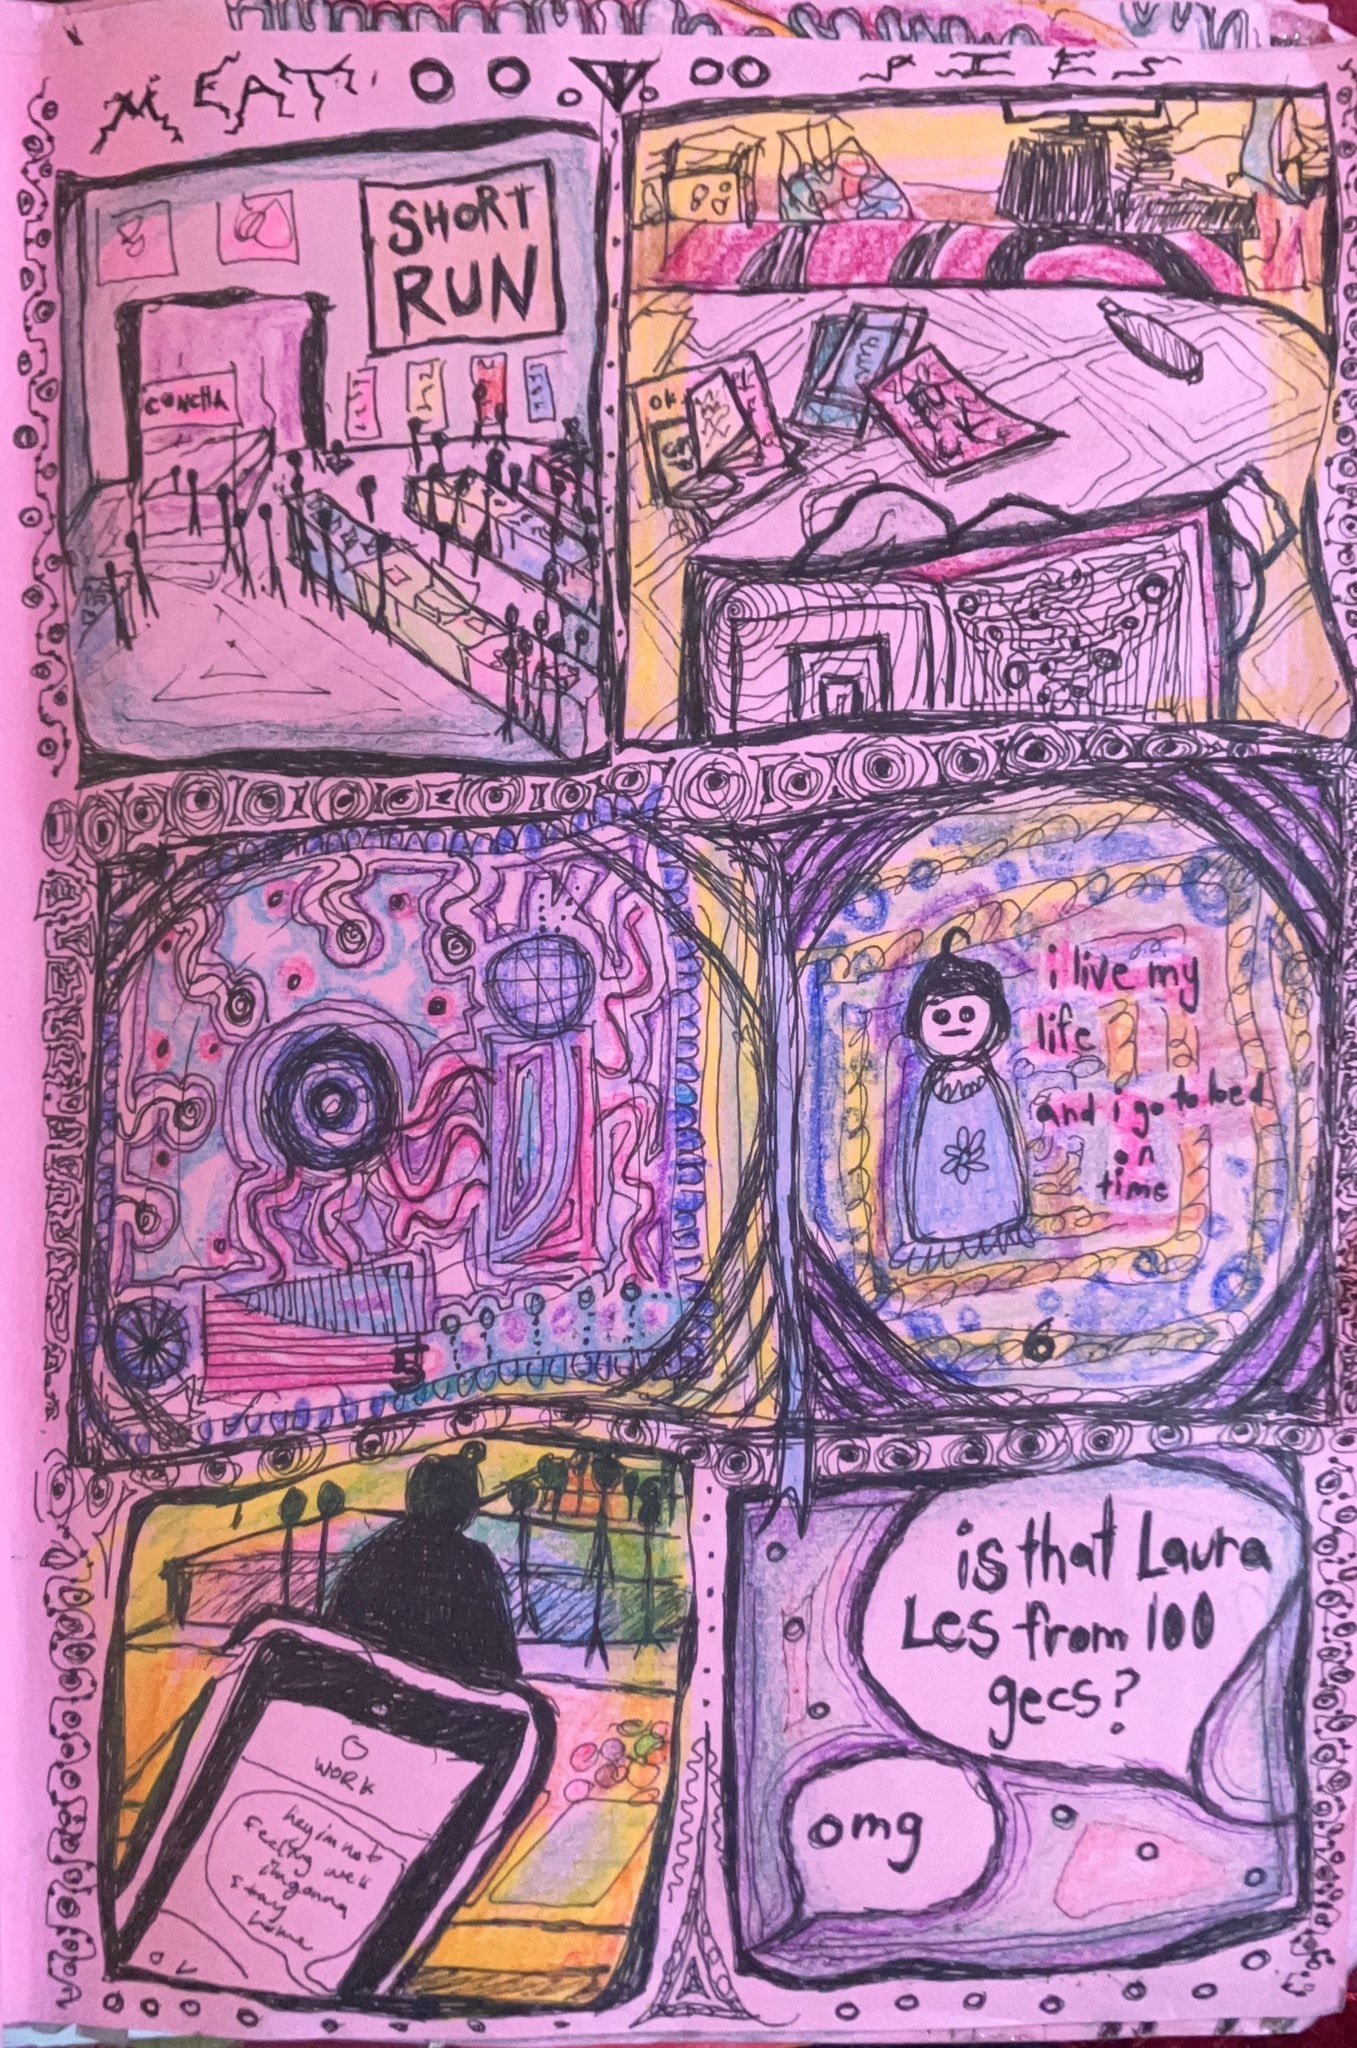 MEAT PIES
SHORT
RUN
CONCHA
i live my
life
and i go to bed
on
time
5
6
WORK
hey im not
feeling well
im gonna
stay
home
is that Laura
Les from 100
gecs?
omg